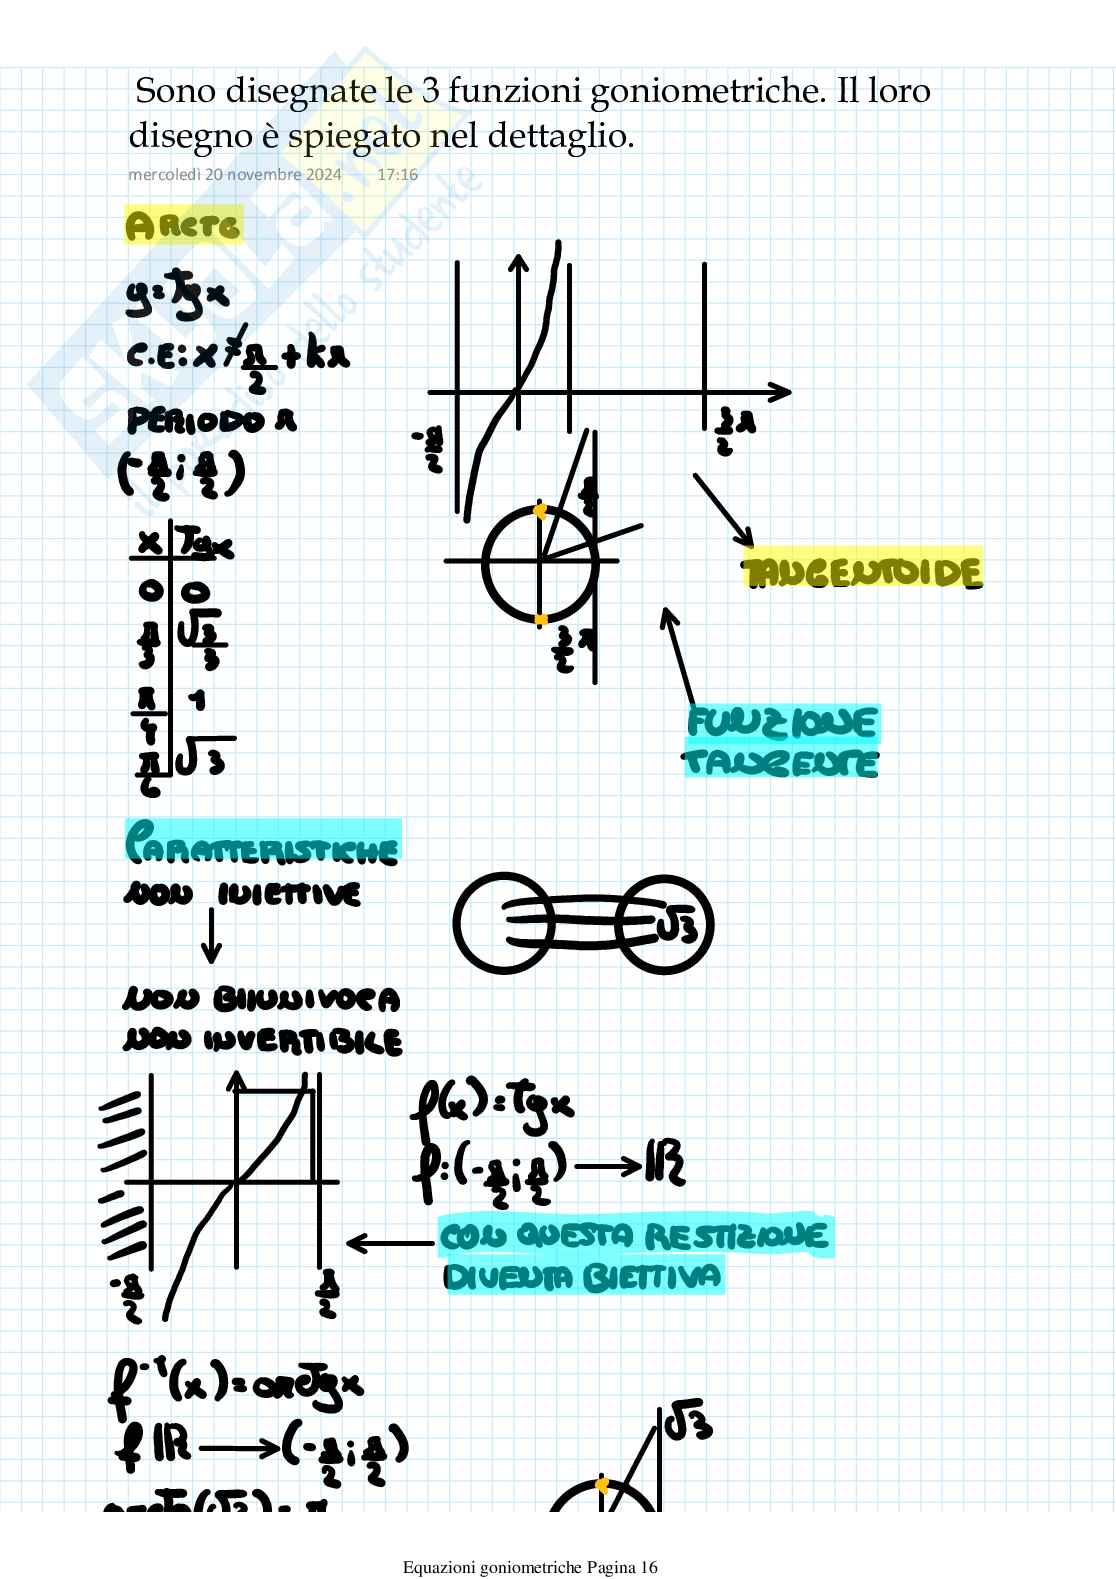 Sono disegnate le 3 funzioni goniometriche. Il loro
disegno è spiegato nel dettaglio.
mercoledì 20 novembre 2024 17:16
SKUOLA.net
dello studente
ARCTG
y=Tgx
C.E: x ≠ π/2 + kπ
PERIODO π
(-π/2; π/2)
-π/2
3/2 π
x Tgx
0 0
π/3 √3/3
π/4 1
π/6 √3
π/2
3/2 π
TANGENTOIDE
FUNZIONE
TANGENTE
CARATTERISTICHE
NON INIETTIVE
√3
NON BIUNIVOCA
NON INVERTIBILE
f(x)=Tgx
f:(-π/2; π/2) → ℝ
CON QUESTA RESTIZIONE
DIVENTA BIETTIVA
-π/2 π/2
f⁻¹(x)=arcTgx
f ℝ → (-π/2; π/2)
√3
Equazioni goniometriche Pagina 16